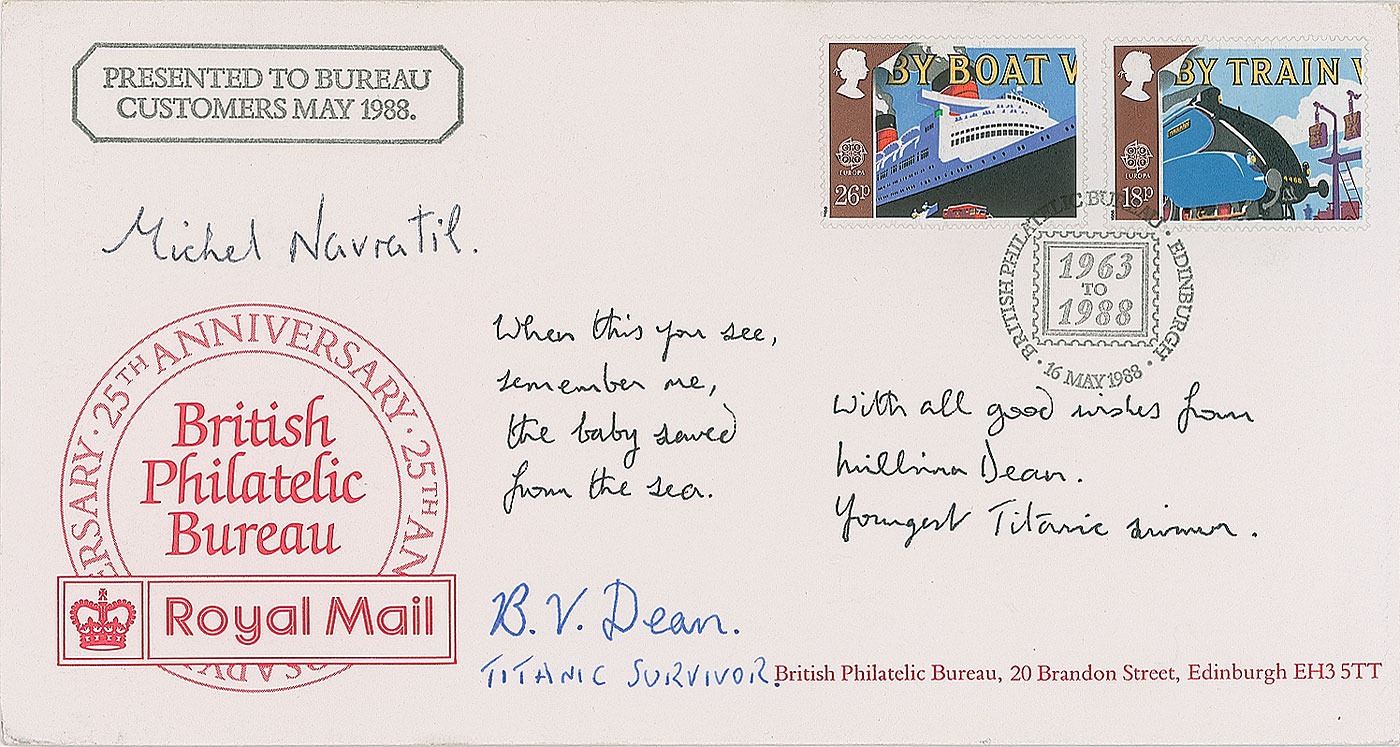 PRESENTED TO BUREAU
CUSTOMERS MAY 1988.
BY BOAT V
EUROPA
26P
BY TRAIN V
EUROPA
18P
BRITISH PHILATELIC BUREAU · EDINBURGH ·
1963
TO
1988
16 MAY 1988
Michel Navratil.
When this you see,
remember me,
the baby saved
from the sea.
With all good wishes from
Millvina Dean.
Youngest Titanic survivor.
25TH ANNIVERSARY · 25TH AN
ERSARY ·
British
Philatelic
Bureau
Royal Mail
B. V. Dean.
TITANIC SURVIVOR.
British Philatelic Bureau, 20 Brandon Street, Edinburgh EH3 5TT